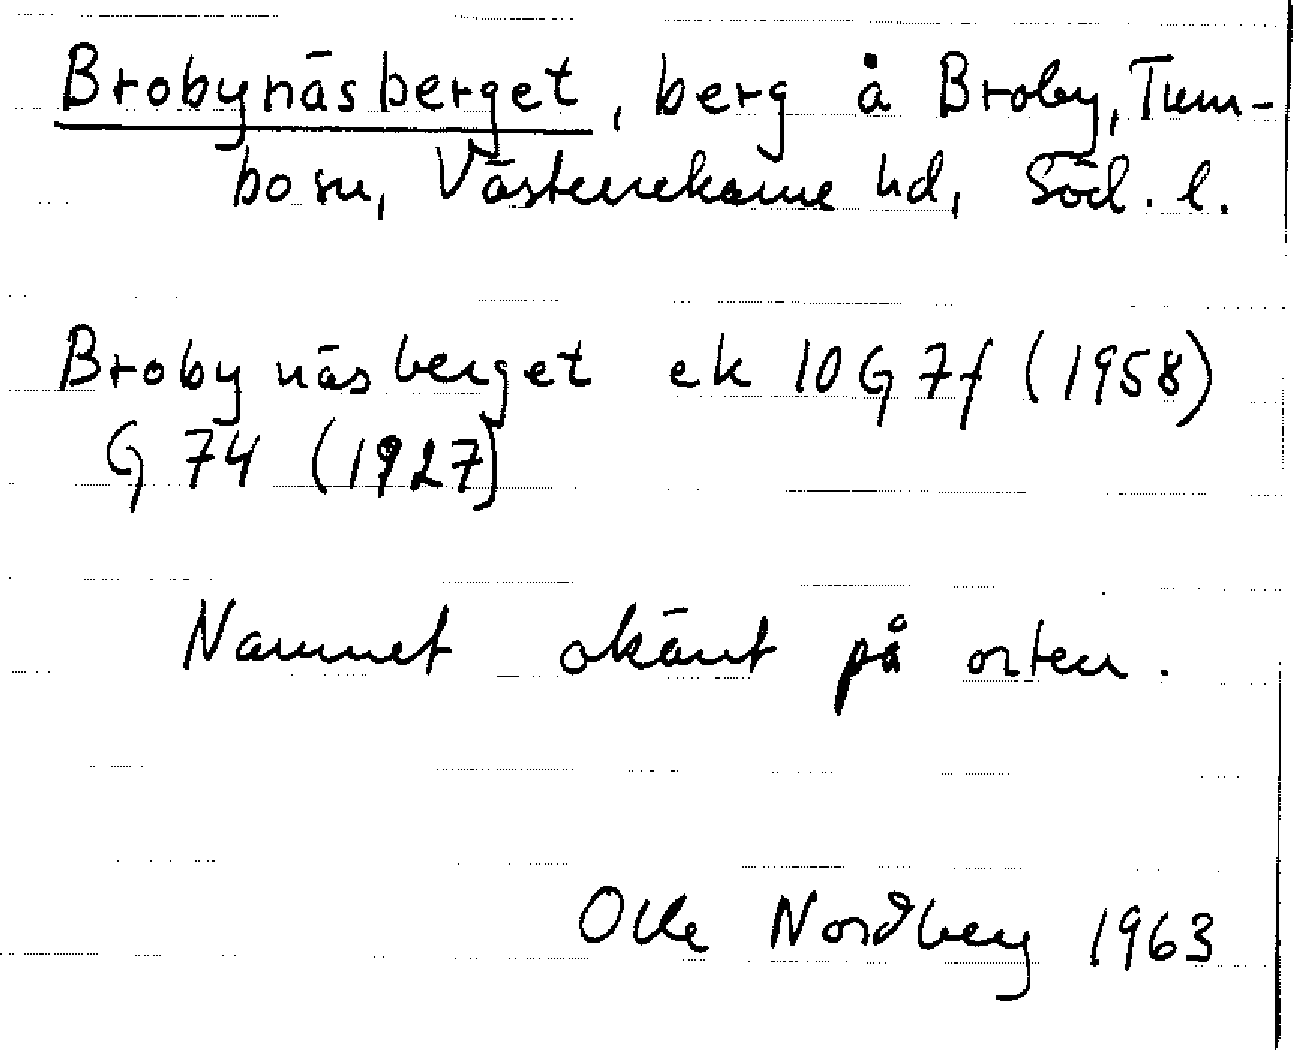 Brobynäsberget, berg å Broby, Tum-
bo sn, Västerrekarne hd, Söd. l.
Brobynäsberget ek 10G 7f (1958)
G 74 (1927)
Namnet okänt på orten.
Olle Nordberg 1963